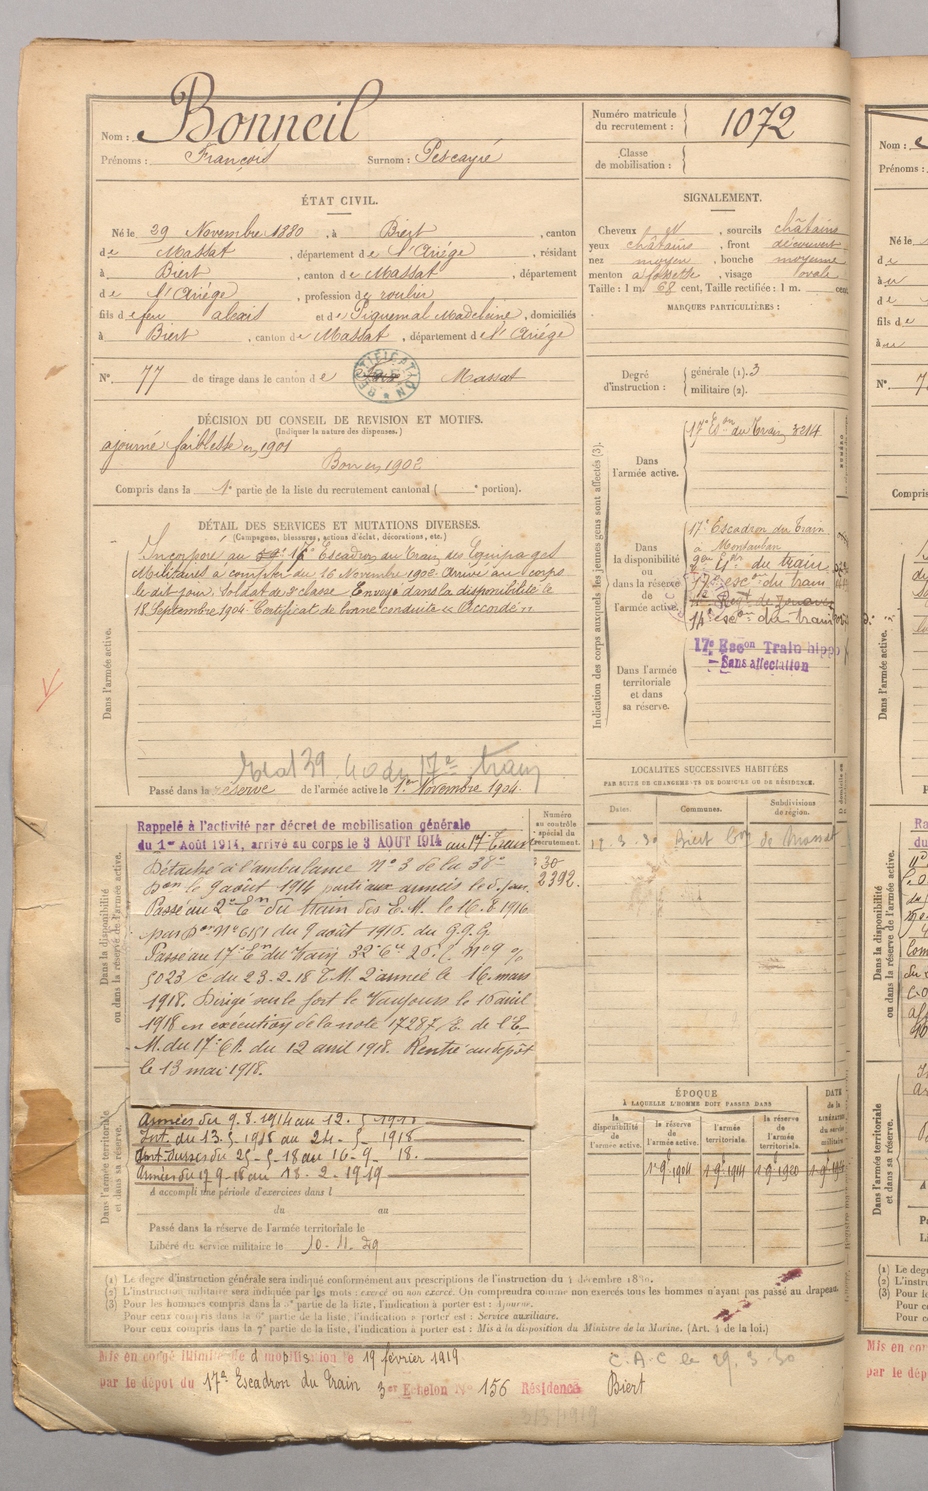 Nom : Bonneil
Prénoms : François Surnom : Pescayré
Numéro matricule du recrutement : 1072
Classe de mobilisation :
ÉTAT CIVIL.
Né le 29 Novembre 1880, à Biert, canton
de Massat, département de l'Ariège, résidant
à Biert, canton de Massat, département
de l'Ariège, profession de roulier
fils de feu alexis et de Piquemal Madeleine, domiciliés
à Biert, canton de Massat, département de l'Ariège
N° 77 de tirage dans le canton de Massat
RECTIFICATION
SIGNALEMENT.
Cheveux N, sourcils châtains
yeux châtains, front découvert
nez moyen, bouche moyenne
menton à fossette, visage ovale
Taille : 1 m. 68 cent, Taille rectifiée : 1 m. cent.
MARQUES PARTICULIÈRES :
Degré d'instruction : générale (1). 3
militaire (2).
DÉCISION DU CONSEIL DE REVISION ET MOTIFS.
(Indiquer la nature des dispenses.)
ajourné faiblesse en 1901
Bon en 1902
Compris dans la 1e partie de la liste du recrutement cantonal ( e portion).
DÉTAIL DES SERVICES ET MUTATIONS DIVERSES.
(Campagnes, blessures, actions d'éclat, décorations, etc.)
Incorporé au 17e Escadron du Train des Equipages
Militaires à compter du 16 Novembre 1902. Arrivé au corps
le dit jour. Soldat de 2e classe Envoyé dans la disponibilité le
18 Septembre 1904. Certificat de bonne conduite "Accordé"
Dans l'armée active.
39 40 du 17e train
Passé dans la réserve de l'armée active le 1er Novembre 1904.
Indication des corps auxquels les jeunes gens sont affectés (3).
Dans l'armée active.
17e Eson du Train 3214
Dans la disponibilité ou dans la réserve de l'armée active.
17e Escadron du Train
à Montauban
du train
17e escon du train
Régt de Zouaves
14e escon du train
17e Escon Train hippo
Sans affectation
Dans l'armée territoriale et dans sa réserve.
LOCALITES SUCCESSIVES HABITÉES
PAR SUITE DE CHANGEMENTS DE DOMICILE OU DE RÉSIDENCE.
Dates. Communes. Subdivisions de région.
3. 30 Biert de Massat
Dans la disponibilité ou dans la réserve de l'armée active.
Numéro au contrôle spécial du recrutement.
30
2392.
Rappelé à l'activité par décret de mobilisation générale
du 1er Août 1914, arrivé au corps le 3 AOUT 1914 au 17e Train
Détaché à l'ambulance N° 3 de la 38e
Don le 9 août 1914 parti aux armées le d. jour.
Passé au 2e En du train des E. M. le 16.8.1916
par Don N° 6151 du 9 août 1916. du G.Q.G.
Passé au 17e E. du train 32e Cie
5023 c du 23-2-18 T.M. 2e armée le 16 mars
1918. Dirigé sur le fort de Vaujours le 10 avril
1918 en exécution de la note 17287/E de l'E.
M. du 17e C.A. du 12 avril 1918. Rentré au dépôt
le 13 mai 1918.
Dans l'armée territoriale et dans sa réserve.
Armées du 9.8.1914 au 12.5-1918
Int. du 13-5-1918 au 24-5-1918
du 25-5-18 au 16-9-18.
Armées du 17 9-18 au 18-2-1919
A accompli une période d'exercices dans l
du au
Passé dans la réserve de l'armée territoriale le
Libéré du service militaire le 10-11-29
ÉPOQUE
À LAQUELLE L'HOMME DOIT PASSER DANS
la disponibilité de l'armée active.
la réserve de l'armée active.
l'armée territoriale.
la réserve de l'armée territoriale.
DATE de la LIBÉRATION du service militaire
1er 9bre 1904 1er 9bre 1914 1er 9bre 1920
(1) Le degré d'instruction générale sera indiqué conformément aux prescriptions de l'instruction du 4 décembre 1890.
(2) L'instruction militaire sera indiquée par les mots : exercé ou non exercé. On comprendra comme non exercés tous les hommes n'ayant pas passé au drapeau.
(3) Pour les hommes compris dans la 5e partie de la liste, l'indication à porter est : Ajourné.
Pour ceux compris dans la 6e partie de la liste, l'indication à porter est : Service auxiliaire.
Pour ceux compris dans la 7e partie de la liste, l'indication à porter est : Mis à la disposition du Ministre de la Marine. (Art. 4 de la loi.)
Mis en congé illimité de démobilisation le 19 février 1919
par le dépôt du 17e Escadron du Train 3er Echelon N° 156 Résidence Biert
C.A.C le 29.3.30
3/3/1919